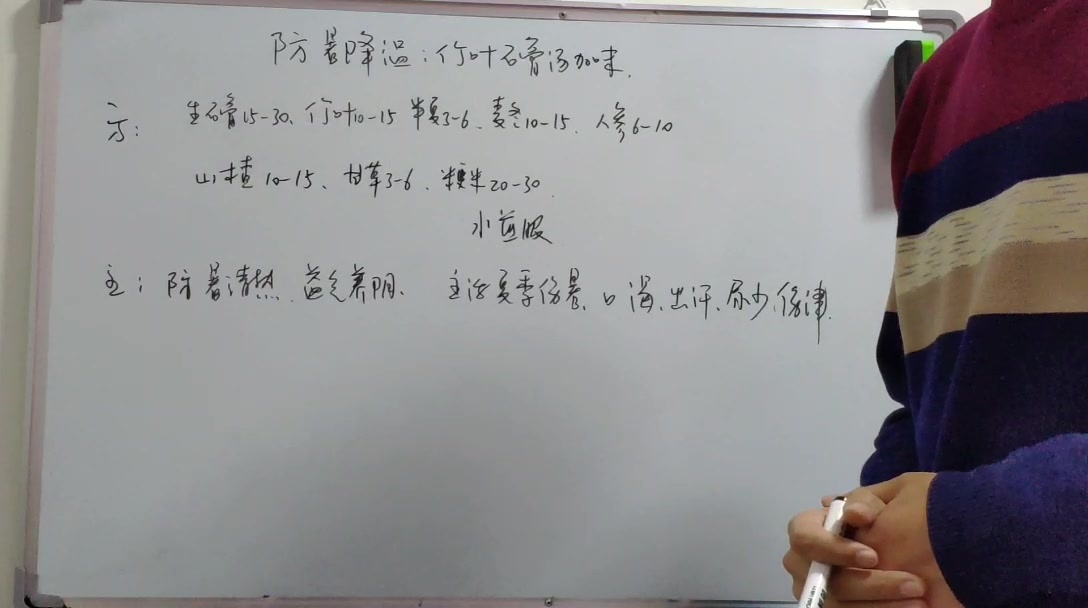 防暑降温:竹叶石膏汤加味.
方: 生石膏15-30、竹叶10-15 半夏3-6、麦冬10-15、人参6-10
山楂10-15、甘草3-6、粳米20-30.
水煎服
主: 防暑清热、益气养阴、 主治夏季伤暑、口渴、出汗、尿少、伤津.